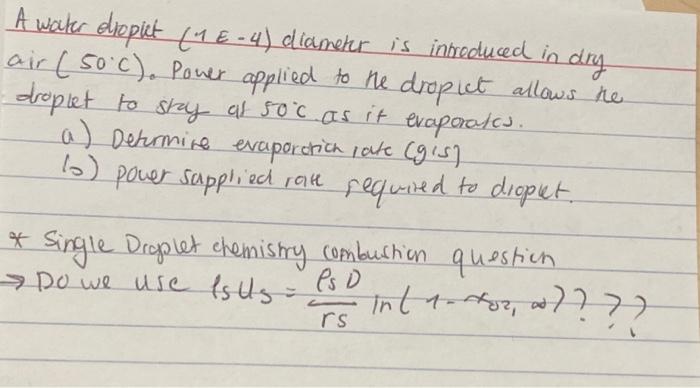 A water droplet (1 E-4) diameter is introduced in dry
air (50°C). Power applied to the droplet allows the
droplet to stay at 50°C as it evaporates.
a) Determine evaporation rate (g/s)
b) power supplied rate required to droplet.
* Single Droplet chemistry combustion question
→ Do we use ρsUs = ρsD / rs ln(1-xO2,∞)????